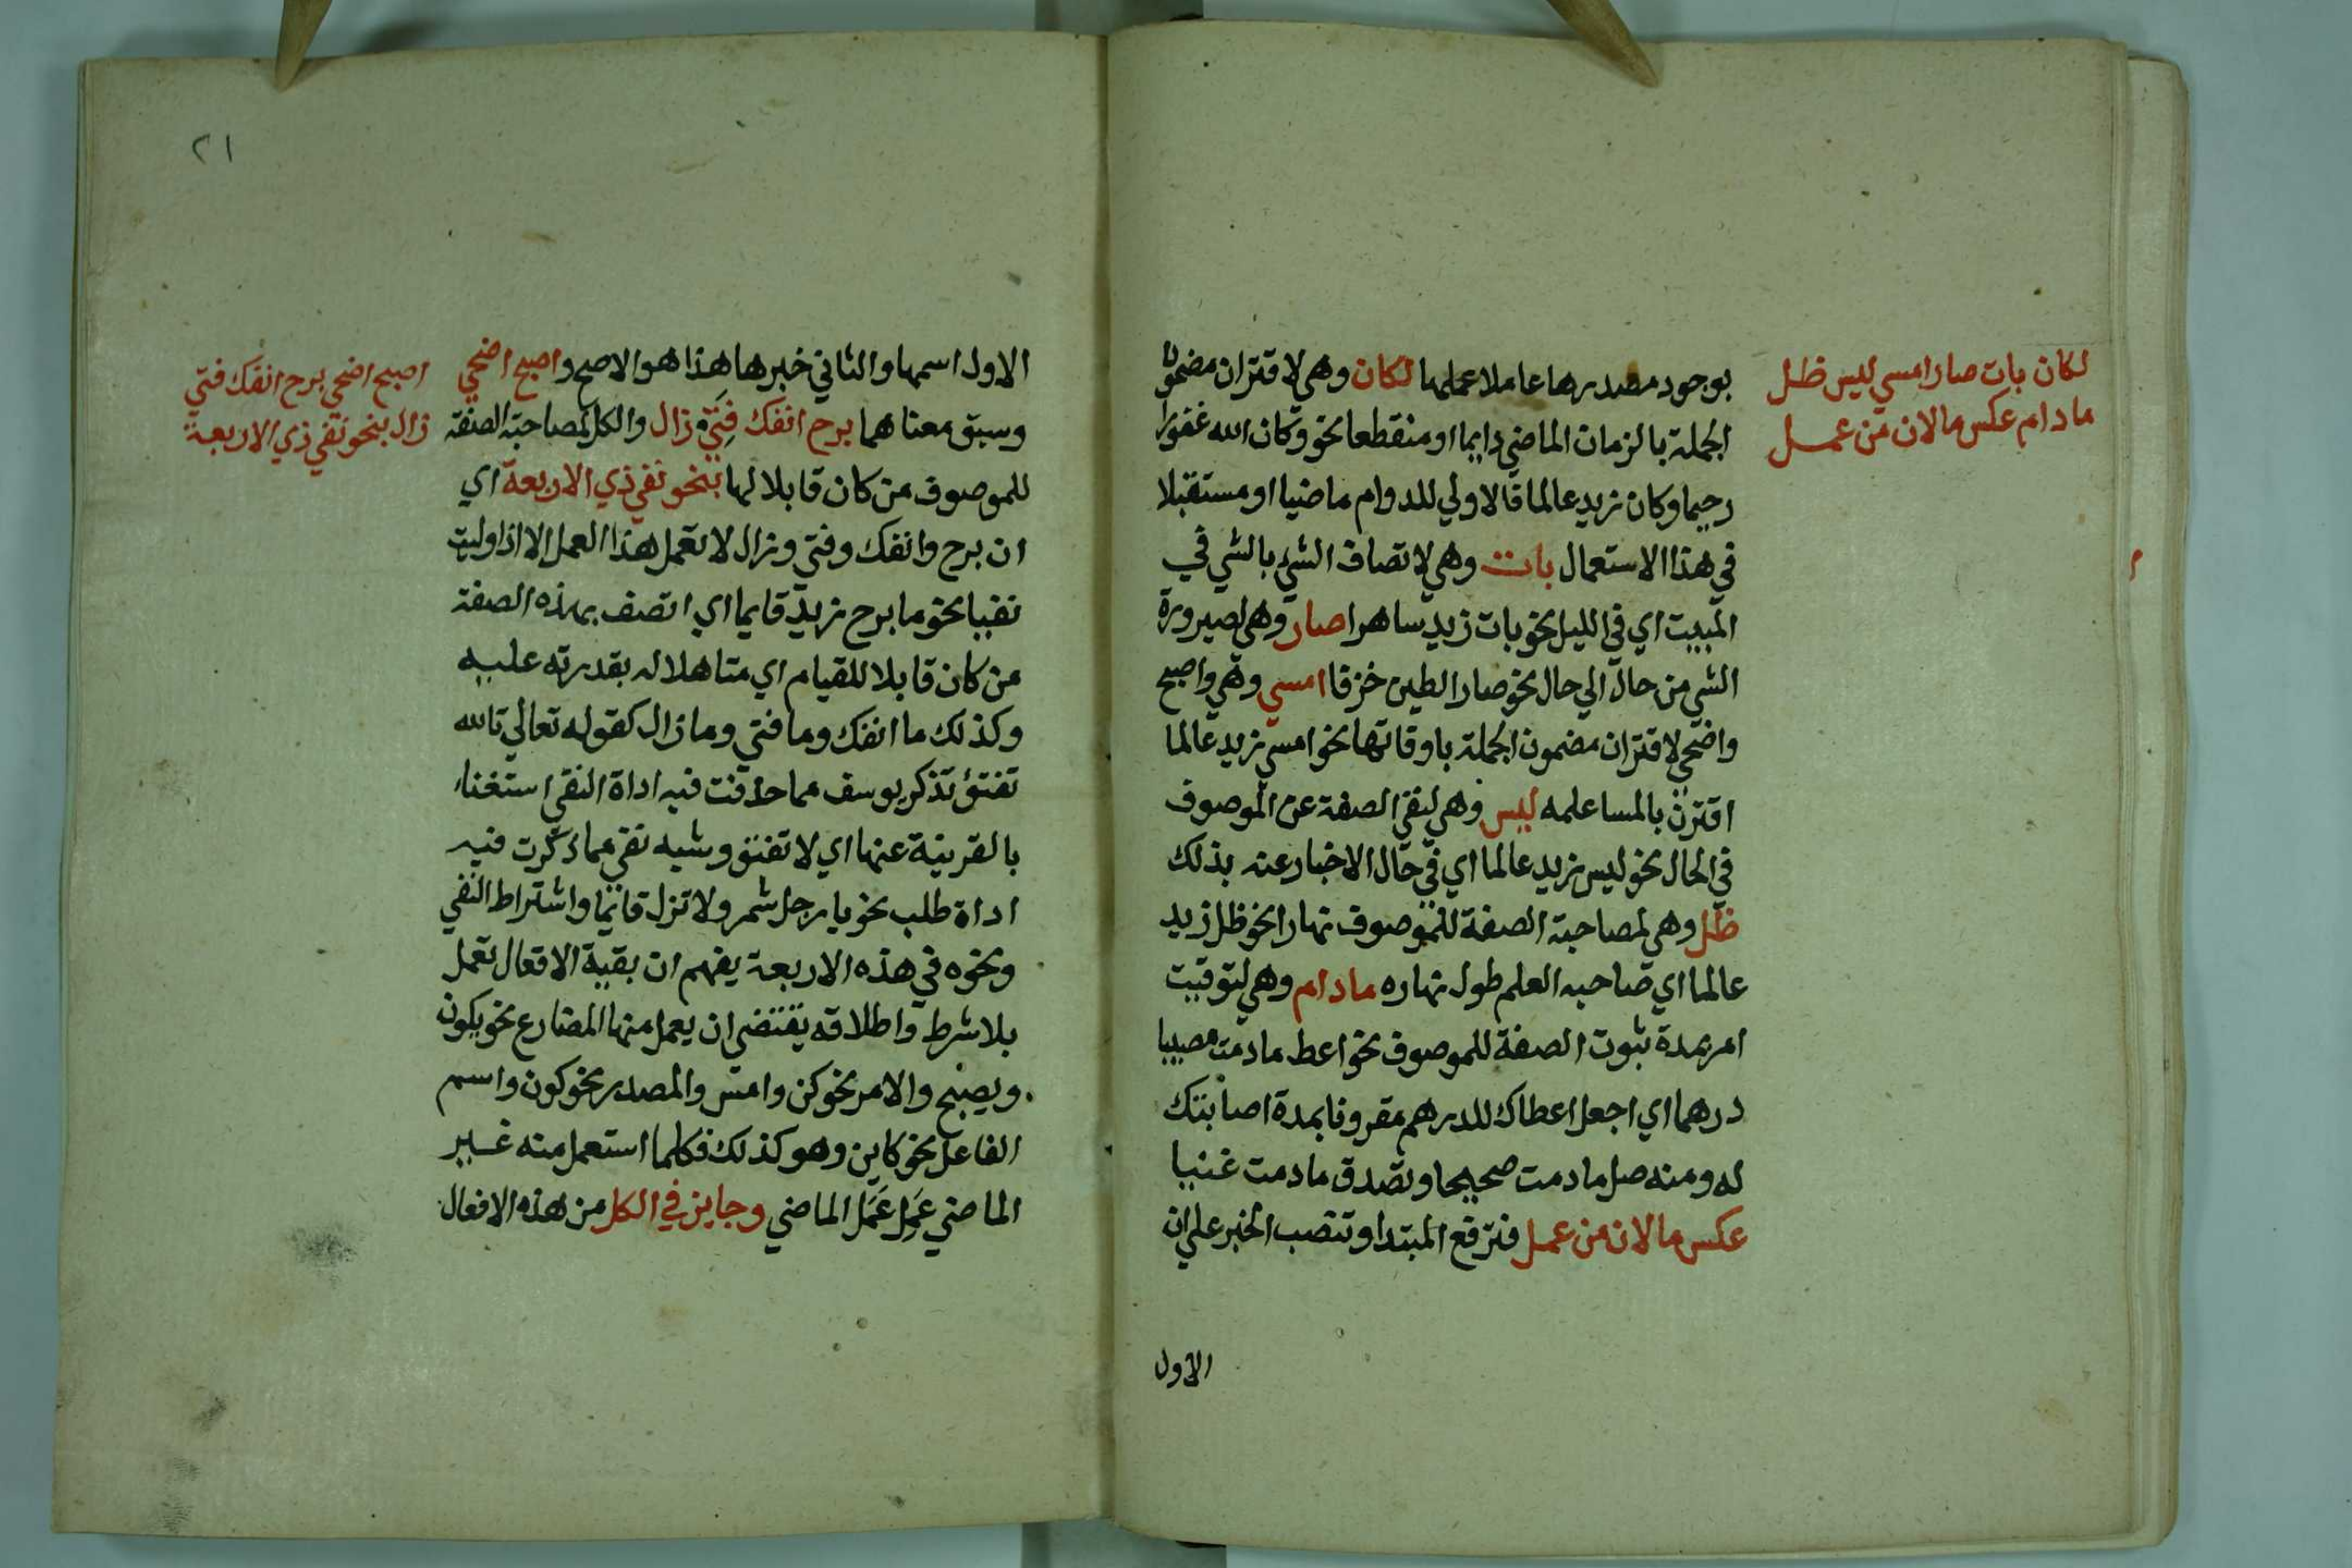 لكان بات صار امسي ليس ظل
مادام عكس مالان من عمل
بوجود مصدرها عاملا عملها لكان وهي لاقتران مضمون
الجملة بالزمان الماضي دايما او منقطعا نحو وكان الله غفورا
رحيما وكان زيد عالما فالاولي للدوام ماضيا او مستقبلا
في هذا الاستعمال بات وهي لاتصاف الشيء بالشي في
المبيت اي في الليل نحو بات زيد ساهرا صار وهي لصيرورة
الشي من حال الي حال نحو صار الطين خزفا امسي وهي واصبح
واضحي لاقتران مضمون الجملة باوقاتها نحو امسي زيد عالما
اقترن بالمسا علمه ليس وهي لنفي الصفة عن الموصوف
في الحال نحو ليس زيد عالما اي في حال الاخبار عنه بذلك
ظل وهي لمصاحبة الصفة للموصوف نهارا نحو ظل زيد
عالما اي صاحبه العلم طول نهاره مادام وهي لتوقيت
امر بمدة ثبوت الصفة للموصوف نحو اعط مادمت مصيبا
درهما اي اجعل اعطاك للدرهم مقرونا بمدة اصابتك
له ومنه صل مادمت صحيحا وتصدق مادمت غنيا
عكس مالان من عمل فترفع المبتدا وتنصب الخبر علي ان
الاول
٢١
الاول اسمها والثاني خبرها هذا هو الاصح واصبح اضحي
وسبق معناهما برح انفك فتئ زال والكل لمصاحبة الصفة
للموصوف من كان قابلا لها بنحو نفي ذي الاربعة اي
ان برح وانفك وفتي وزال لا تعمل هذا العمل الا اذا وليت
نفيا نحو ما برح زيد قايما اي اتصف بهذه الصفة
من كان قابلا للقيام اي متاهلا له بقدرته عليه
وكذلك ما انفك وما فتي وما زال كقوله تعالي تالله
تفتؤ تذكر يوسف مما حذفت فيه اداة النفي استغناء
بالقرينة عنها اي لا تفتؤ وشبه نفي مما ذكرت فيه
اداة طلب نحو يا رجل شمر ولا تزل قائما واشتراط النفي
ونحوه في هذه الاربعة يفهم ان بقية الافعال تعمل
بلا شرط واطلاقه يقتضي ان يعمل منها المضارع نحو يكون
ويصبح والامر نحو كن وامس والمصدر نحو كون واسم
الفاعل نحو كاين وهو كذلك فكلما استعمل منه غير
الماضي عَمِل عَمَل الماضي وجايز في الكل من هذه الافعال
اصبح اضحي برح انفك فتي
زال بنحو نفي ذي الاربعة